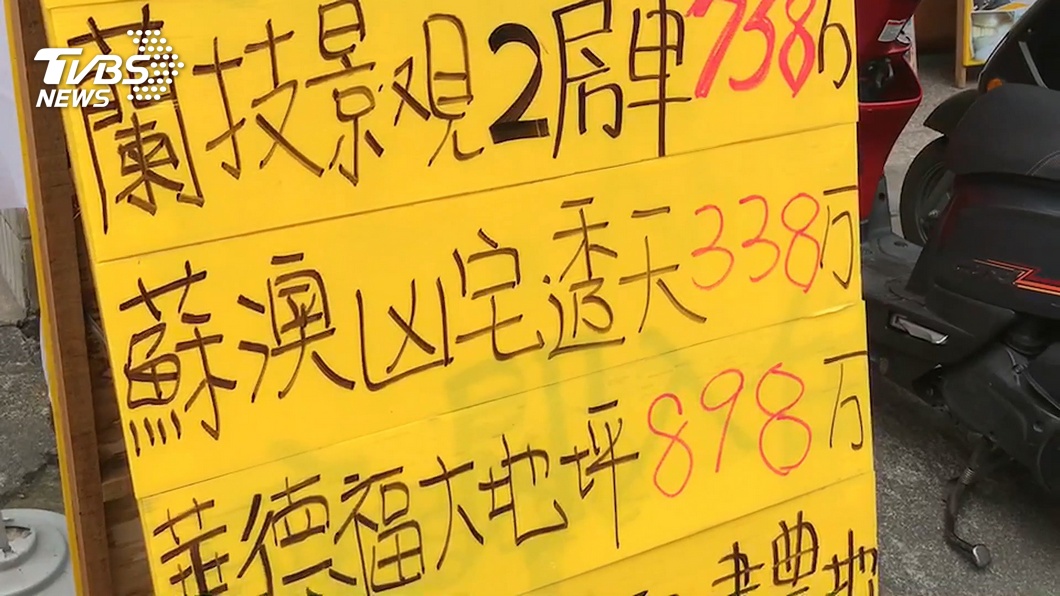 TVBS
NEWS
蘭技景观2局車738万
蘇澳凶宅透天338万
華德福大地坪898万
農地